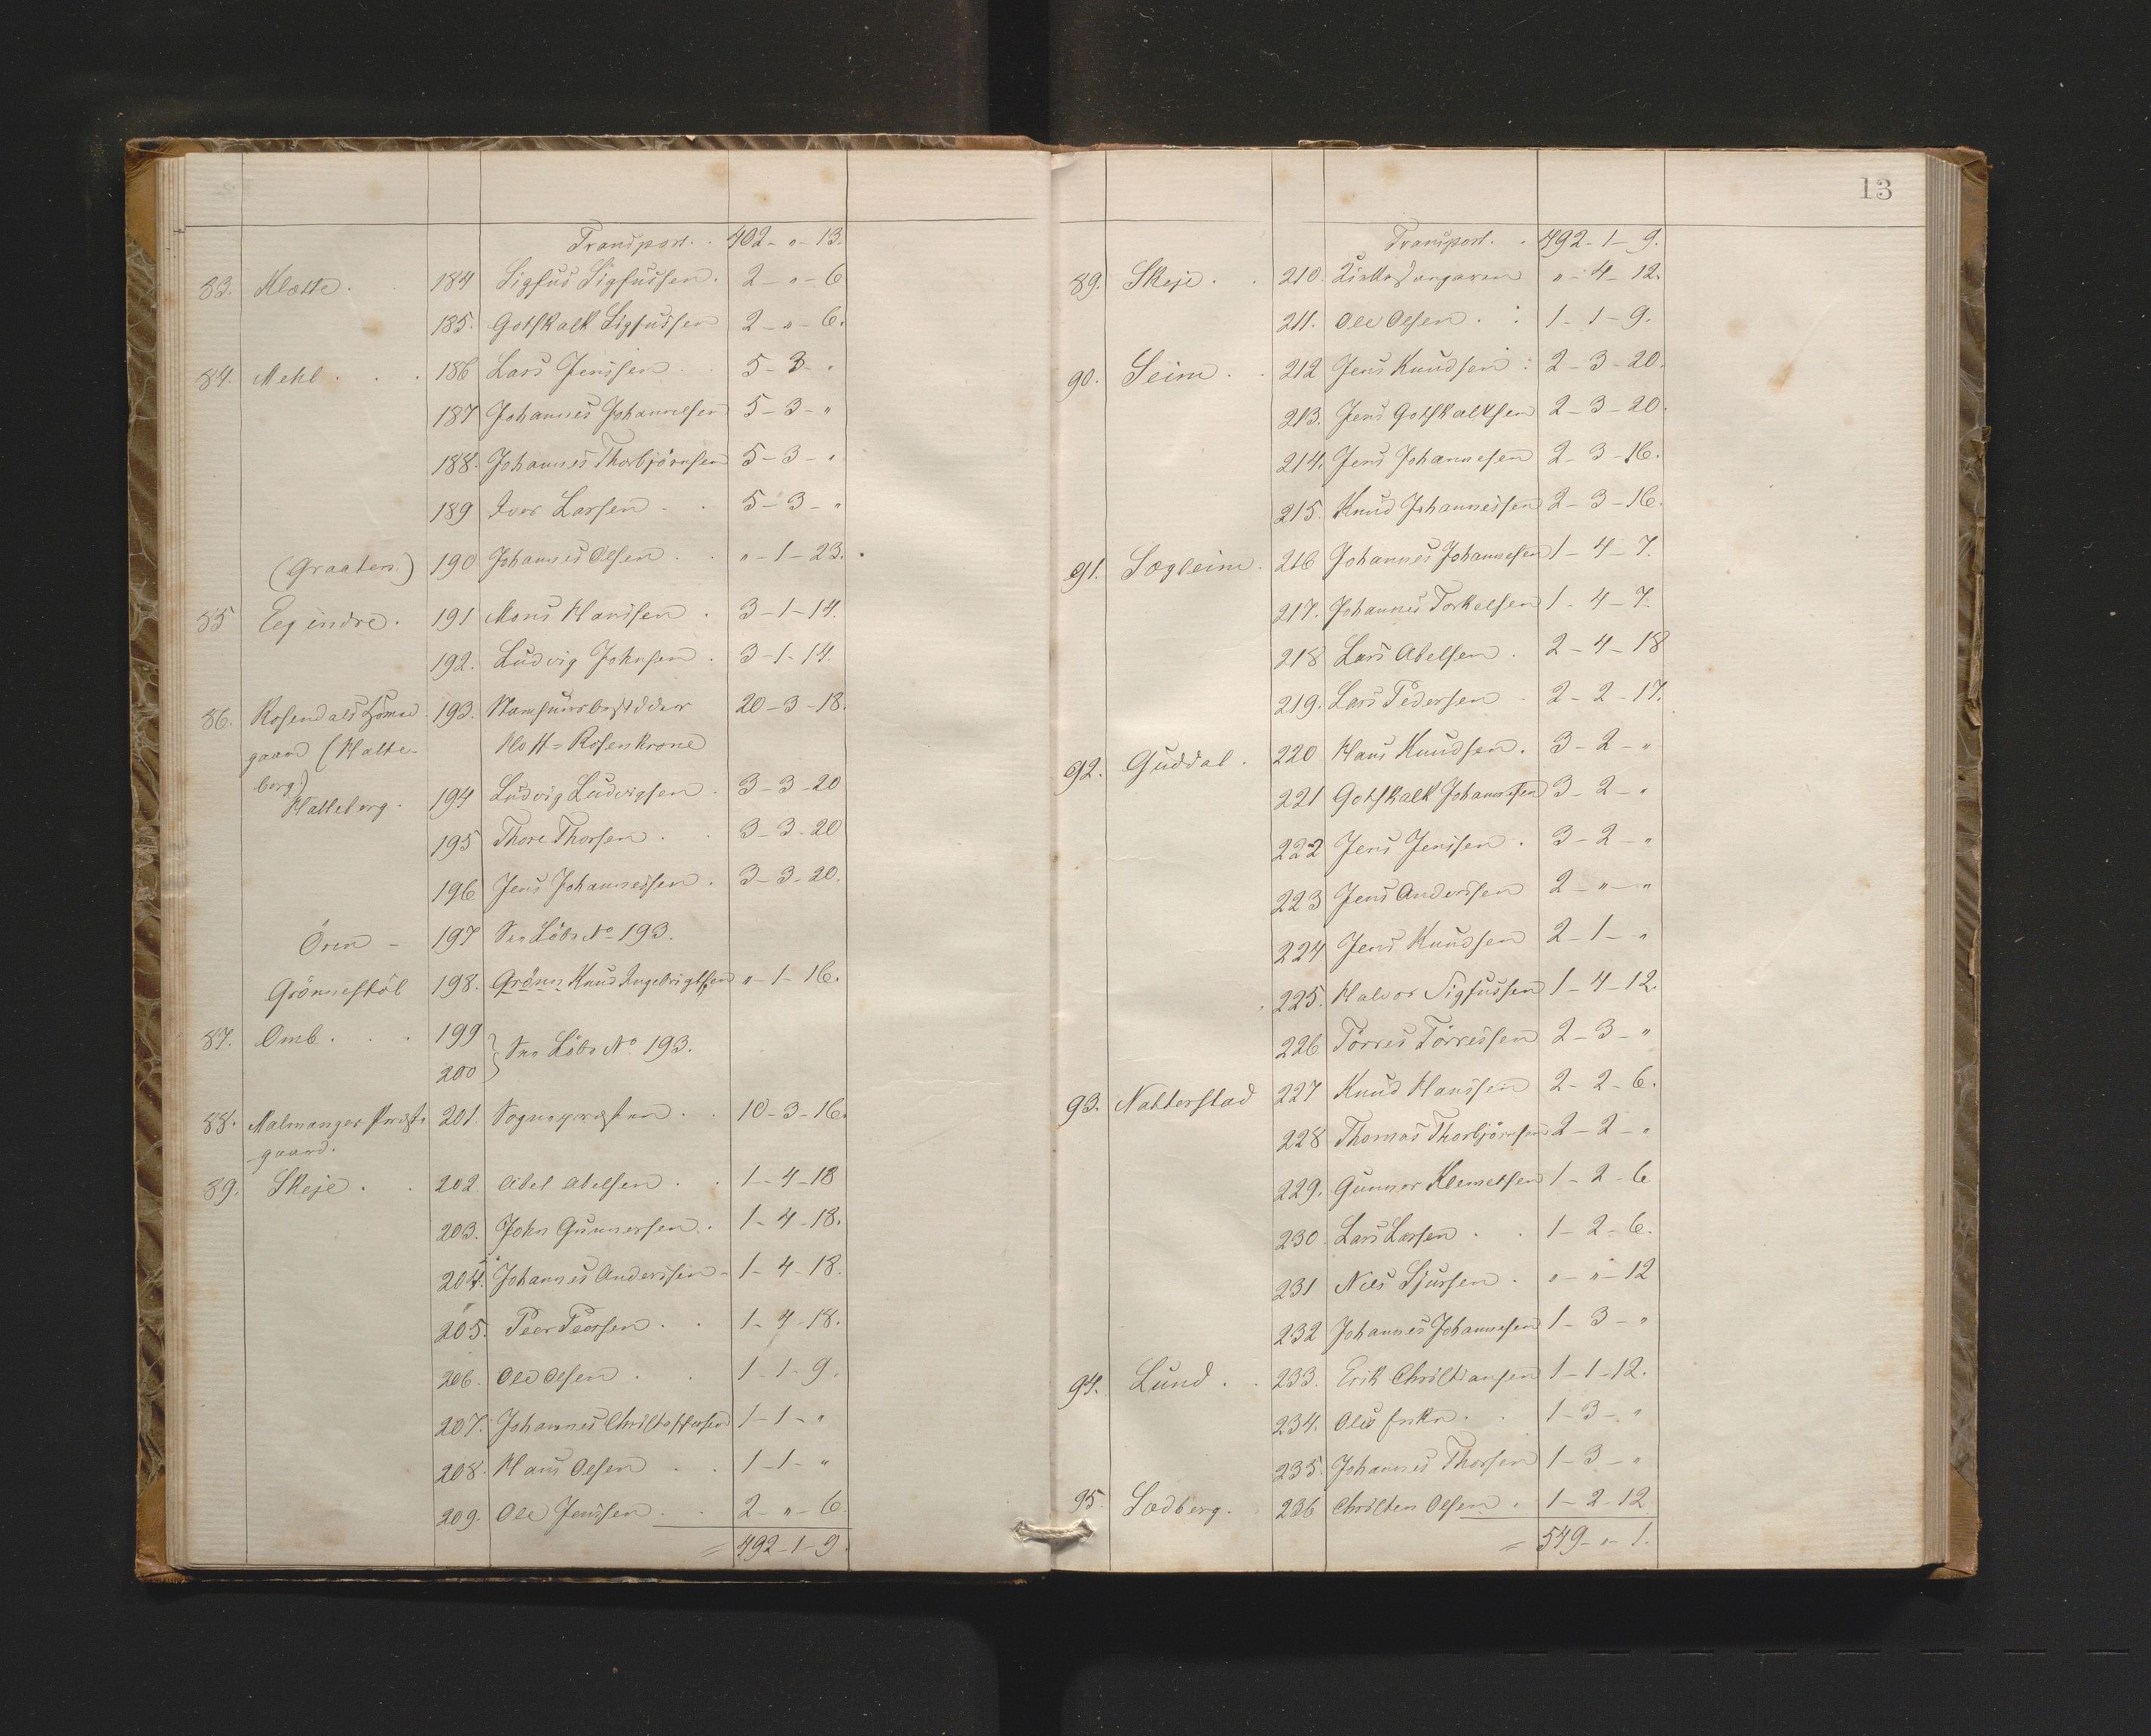 Transport. . 402 - " - 13.
83. Klætte. . 184 Sigfus Sigfussen. 2 - " - 6
185. Gotskalk Sigfussen 2 - " - 6.
84. Mehl . . . 186 Lars Jenssen . . 5 - 3 - "
187 Johannes Johannesen 5 - 3 - "
188. Johannes Thorbjörnsen 5 - 3 - "
189 Iver Larsen . . 5 - 3 - "
(Graaten) 190 Johannes Olsen . . " - 1 - 23.
85 Eeg indre. 191 Mons Hanssen . 3 - 1 - 14.
192. Ludvig Johnsen . 3 - 1 - 14.
86. Rosendals 193. Stamhuusbesidder 20 - 3 - 18.
gaard (Hatte- Hoff-Rosenkrone
berg)
Hatteberg. 194 Ludvig Ludvigsen . 3 - 3 - 20
195 Thore Thorsen . . 3 - 3 - 20
196 Jens Johannessen . 3 - 3 - 20.
Ören - 197 See Löbe No 193.
Grönnestöl 198. Grönn Knud Ingebrigtsen " - 1 - 16.
87. Omb . . . 199
200 } See Löbe No 193.
88. Malmanger Præste 201. Sognepræsten . . 10 - 3 - 16.
-gaard.
89. Skeje . . 202. Abel Abelsen . . 1 - 4 - 18
203. John Gunnersen . 1 - 4 - 18.
204. Johannes Anderssen - 1 - 4 - 18.
205. Peer Peersen . . 1 - 4 - 18.
206. Ole Olsen . . 1 - 1 - 9.
207. Johannes Christoffersen 1 - 1 - "
208. Hans Olsen . . 1 - 1 - "
209. Ole Jenssen . . 2 - " - 6.
= 492 - 1 - 9.
13
Transport. . 492 - 1 - 9.
89. Skeje . . 210. Kirkesangeren " - 4 - 12.
211. Ole Olsen . : 1 - 1 - 9.
90. Seim . . 212 Jens Knudsen : 2 - 3 - 20.
213. Jens Gotskalksen 2 - 3 - 20.
214. Jens Johannesen 2 - 3 - 16.
215. Knud Johannessen 2 - 3 - 16.
91. Sægleim . 216 Johannes Johannesen 1 - 4 - 7.
217. Johannes Torkelsen 1 - 4 - 7.
218 Lars Abelsen . 2 - 4 - 18
219. Lars Pedersen . 2 - 2 - 17.
92. Guddal . 220 Hans Knudsen . 3 - 2 - "
221 Gotskalk Johannssen 3 - 2 - "
222 Jens Jenssen . 3 - 2 - "
223 Jens Anderssen 2 - " - "
224 Jens Knudsen 2 - 1 - "
225. Halvor Sigfussen 1 - 4 - 12.
226 Törres Törressen 2 - 3 - "
93. Natterstad 227 Knud Hanssen 2 - 2 - 6.
228 Thomas Thorbjörnsen 2 - 2 - "
229. Gunner Klemetsen 1 - 2 - 6
230. Lars Larsen . . 1 - 2 - 6.
231 Nils Sjursen . " - " - 12
232 Johannes Johannesen 1 - 3 - "
94. Lund . . 233. Erik Christiansen 1 - 1 - 12.
234. Oles Enke . . 1 - 3 - "
235. Johannes Thorsen 1 - 3 - "
95. Sædberg. 236 Christen Olsen . 1 - 2 - 12
= 549 - " - 1.